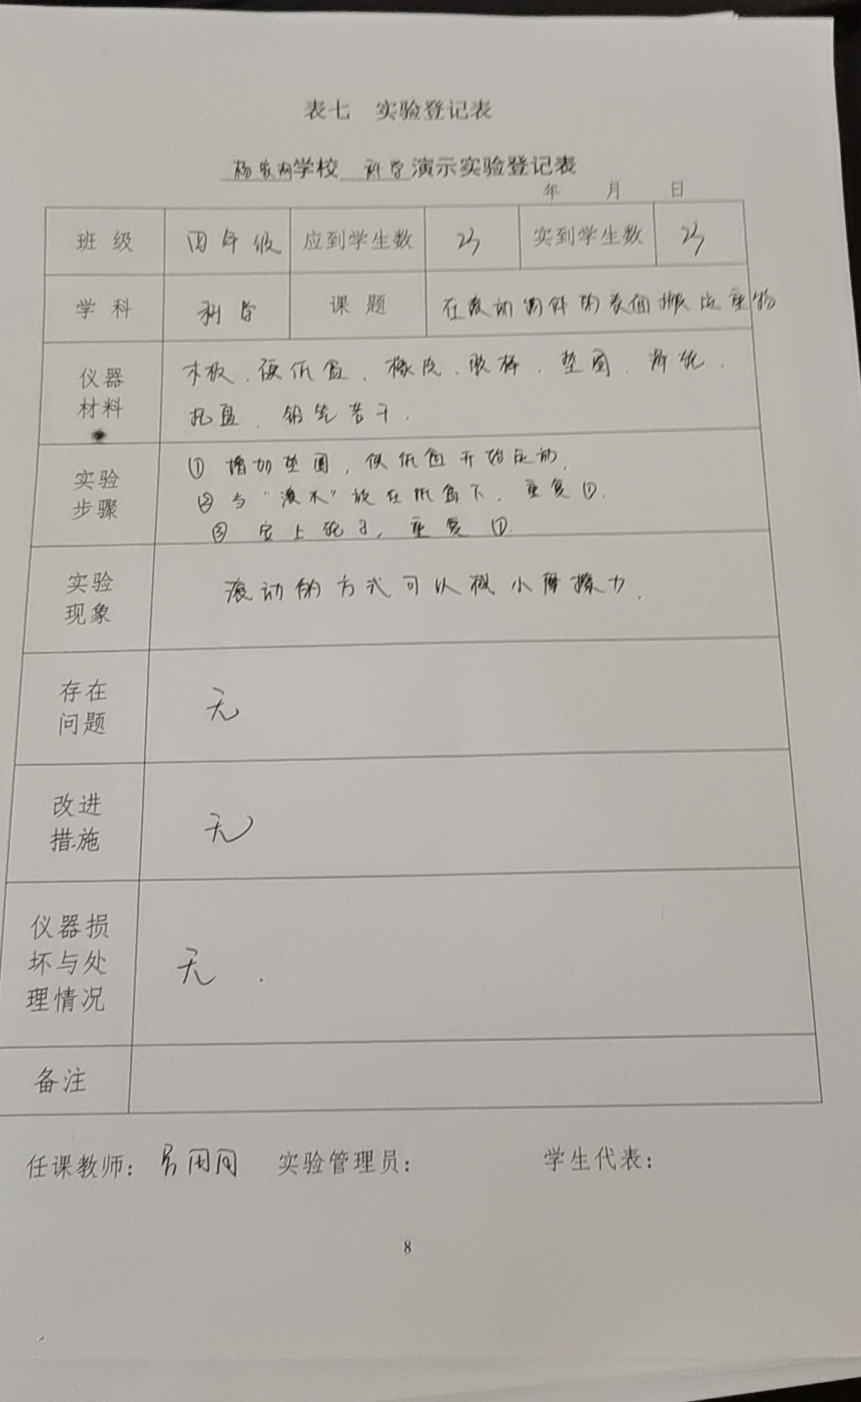 表七 实验登记表
学校 科学 演示实验登记表
年 月 日
班 级 四年级 应到学生数 23 实到学生数 23
学 科 科学 课 题 在滚动物体的表面搬运重物
仪器
材料
木板、硬纸盒、橡皮、胶棒、垫圈、滑轮、
托盘、铅笔若干.
实验
步骤
① 增加垫圈,使纸盒开始运动.
② 与“滚木”放在纸盒下,重复①.
③ 安上轮子,重复①.
实验
现象
滚动的方式可以减小摩擦力.
存在
问题
无
改进
措施
无
仪器损
坏与处
理情况
无.
备注
任课教师: 实验管理员: 学生代表:
8